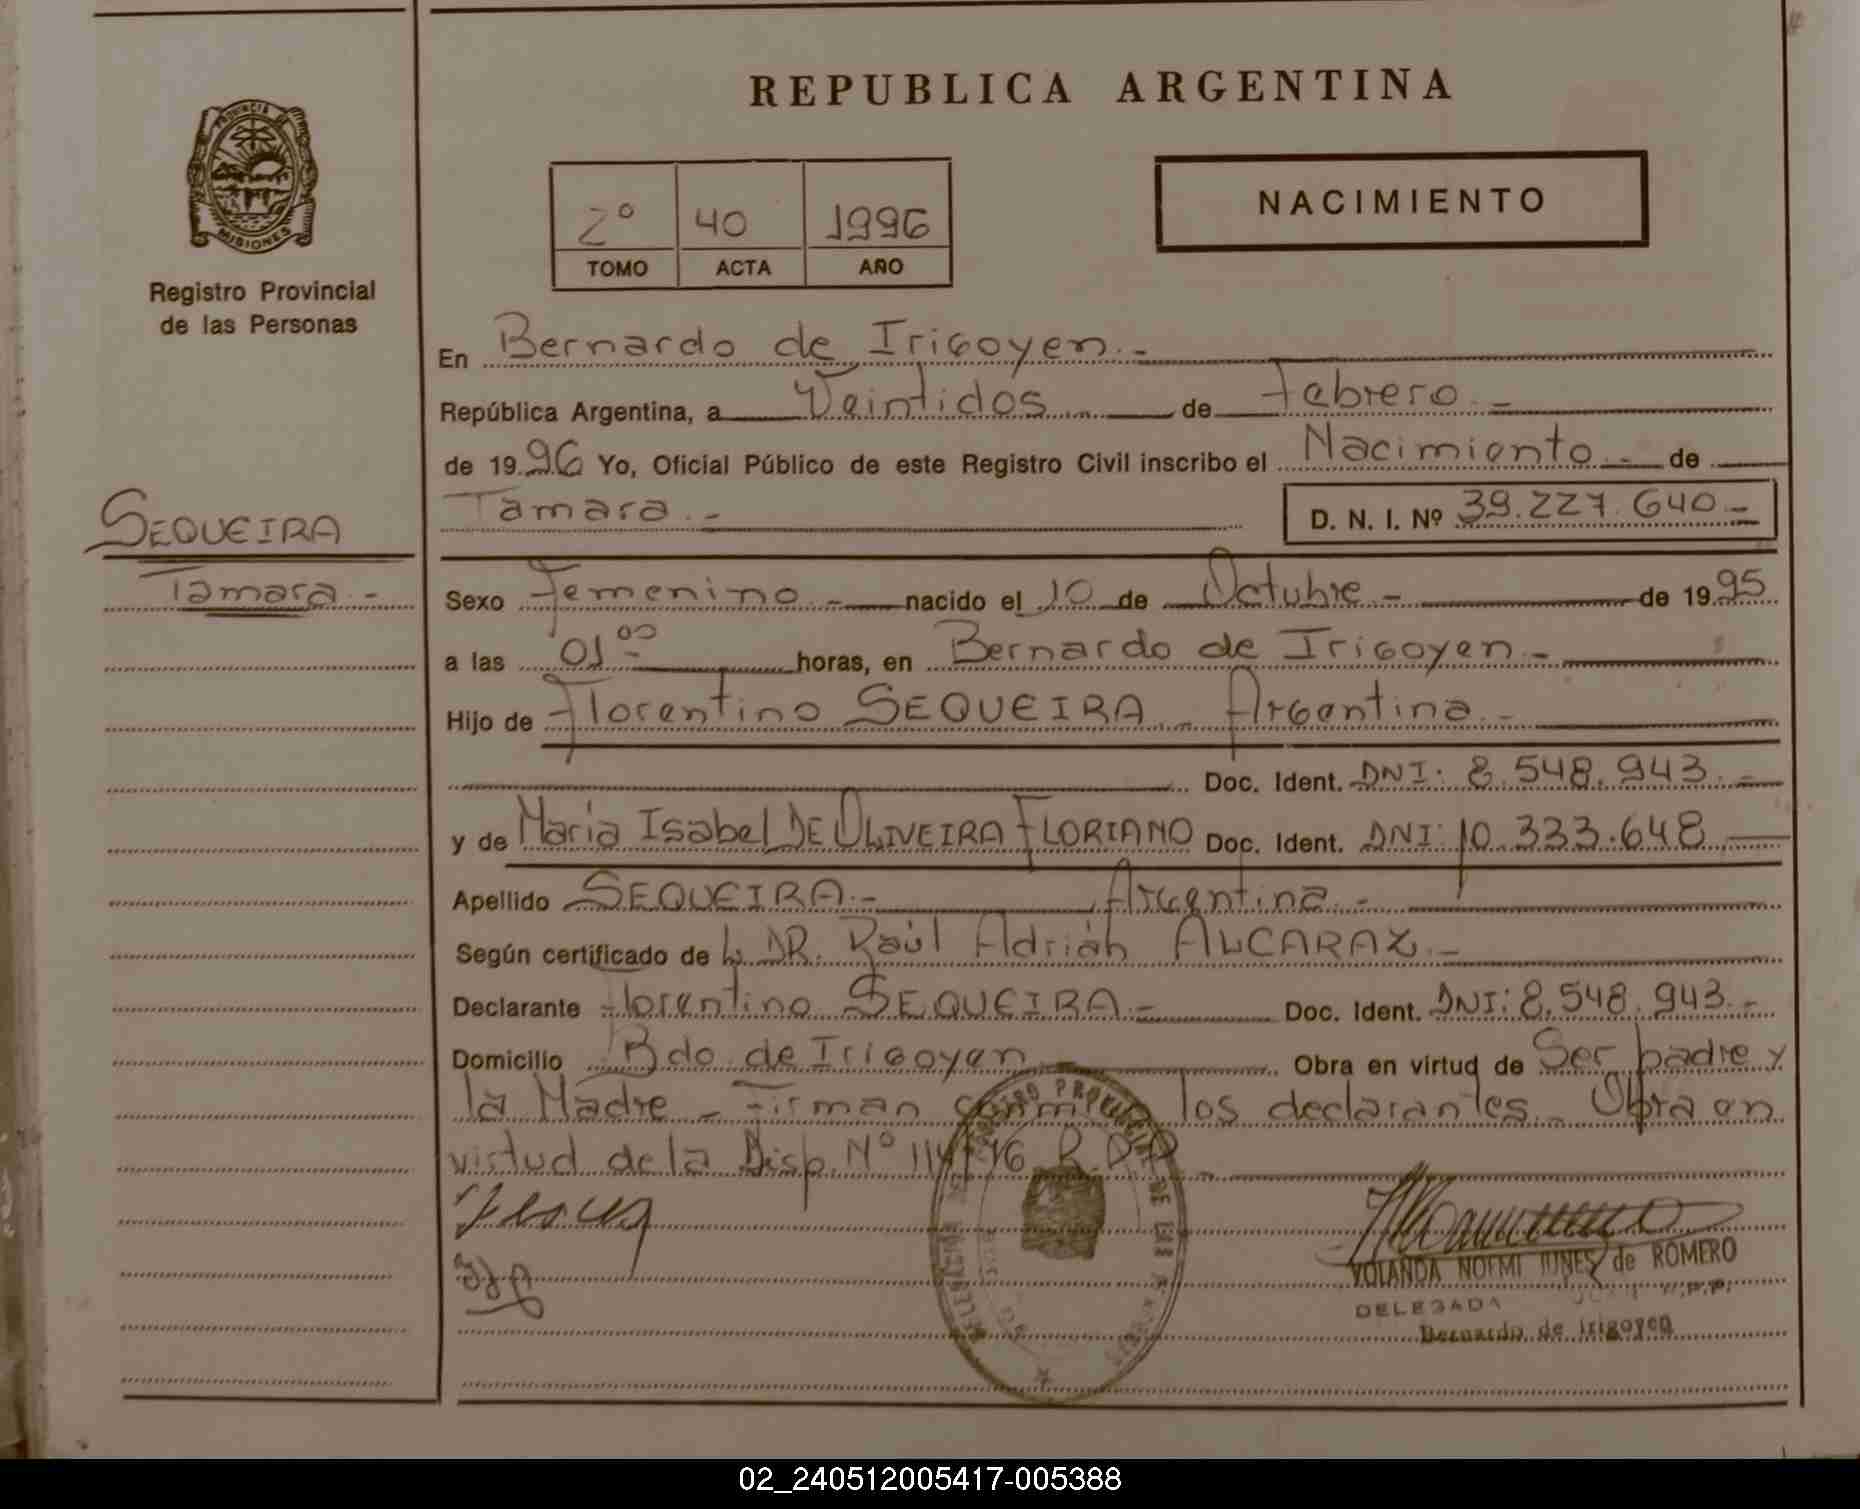 REPUBLICA ARGENTINA
PROVINCIA DE
MISIONES
Registro Provincial
de las Personas
2º 40 1996
TOMO ACTA AÑO
NACIMIENTO
En Bernardo de Irigoyen.-
República Argentina, a Veintidos de Febrero.-
de 1996 Yo, Oficial Público de este Registro Civil inscribo el Nacimiento de
Tamara.-
D. N. I. Nº 39.227.640.-
SEQUEIRA
Tamara.-
Sexo Femenino.- nacido el 10 de Octubre- de 1995
a las 01 00 horas, en Bernardo de Irigoyen.-
Hijo de Florentino SEQUEIRA.- Argentina.-
Doc. Ident. DNI: 8.548.943.-
y de María Isabel DE OLIVEIRA FLORIANO Doc. Ident. DNI: 10.333.648
Apellido SEQUEIRA.- Argentina.-
Según certificado de DR. Raúl Adrián ALCARAZ.-
Declarante Florentino SEQUEIRA.- Doc. Ident. DNI: 8.548.943.-
Domicilio Bdo. de Irigoyen Obra en virtud de Ser padre y
la Madre - Firman los declarantes.- Obra en
virtud de la Disp. Nº
YOLANDA NOEMI de ROMERO
DELEGADA
Bernardo de Irigoyen
02_240512005417-005388